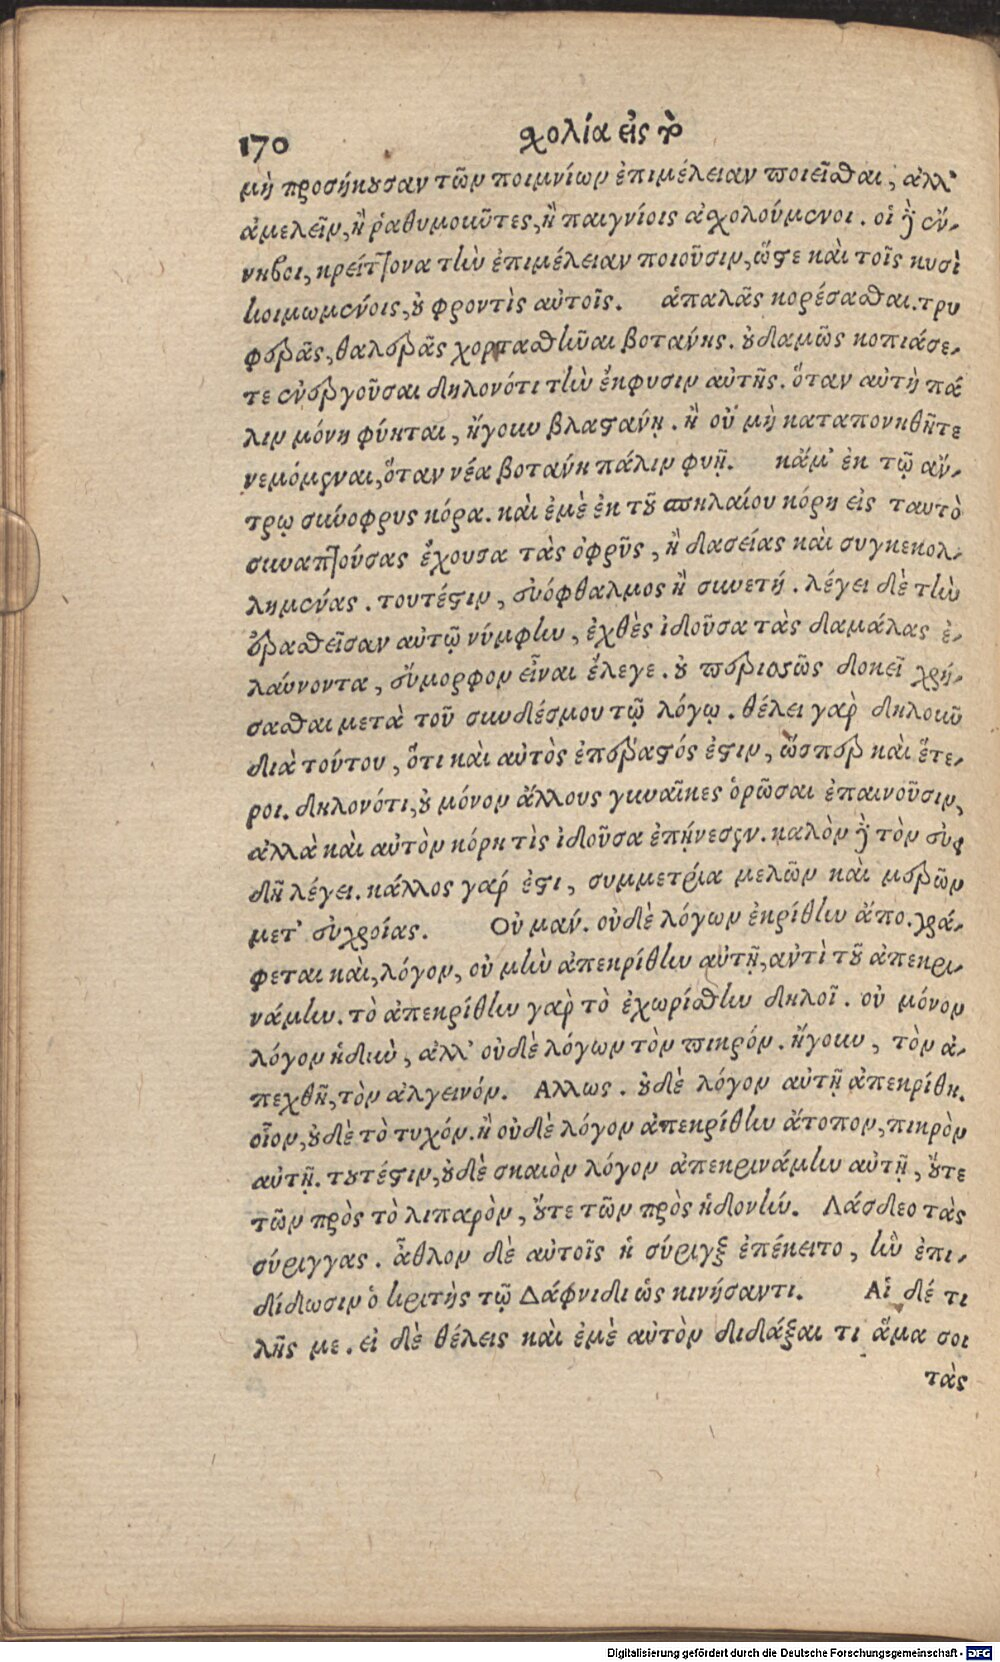 170 σχολία εἰς τὸ
μὴ προσήκουσαν τῶν ποιμνίων ἐπιμέλειαν ποιεῖσθαι, ἀλλ'
ἀμελεῖν, ἢ ῥαθυμοῦντες, ἢ παιγνίοις ἀσχολούμενοι. οἱ γὰρ ἔν-
νηβοι, κρείττονα τὴν ἐπιμέλειαν ποιοῦσιν, ὥστε καὶ τοῖς κυσὶ
κοιμωμένοις, οὐ φροντὶς αὐτοῖς. ἁπαλᾶς κορέσασθαι. τρυ
φερᾶς, θαλερᾶς χορτασθῆναι βοτάνης. οὐδαμῶς κοπιάσε-
τε ἐνεργοῦσαι δηλονότι τὴν ἔκφυσιν αὐτῆς. ὅταν αὐτὴ πά
λιν μόνη φύηται, ἤγουν βλαστάνῃ. ἢ οὐ μὴ καταπονηθῆτε
νεμόμεναι, ὅταν νέα βοτάνη πάλιν φυῇ. κἄμ' ἐκ τῷ ἄν-
τρῳ σύνοφρυς κόρα. καὶ ἐμὲ ἐκ τοῦ σπηλαίου κόρη εἰς ταυτὸ
συναπτούσας ἔχουσα τὰς ὀφρῦς, ἢ δασείας καὶ συγκεκολ-
λημένας. τουτέστιν, εὐόφθαλμος ἢ συνετή. λέγει δὲ τὴν
ἐρασθεῖσαν αὐτῷ νύμφην, ἐχθὲς ἰδοῦσα τὰς δαμάλας ἐ-
λαύνοντα, εὔμορφον εἶναι ἔλεγε. οὐ περισσῶς δοκεῖ χρή-
σασθαι μετὰ τοῦ συνδέσμου τῷ λόγῳ. θέλει γὰρ δηλοῦν
διὰ τούτου, ὅτι καὶ αὐτὸς ἐπέραστός ἐστιν, ὥσπερ καὶ ἕτε-
ροι. δηλονότι, οὐ μόνον ἄλλους γυναῖκες ὁρῶσαι ἐπαινοῦσιν,
ἀλλὰ καὶ αὐτὸν κόρη τὶς ἰδοῦσα ἐπῄνεσεν. καλὸν γὰρ τὸν εὐει
δῆ λέγει. κάλλος γάρ ἐστι, συμμετρία μελῶν καὶ μερῶν
μετ' εὐχροίας. Οὐ μάν. οὐδὲ λόγων ἐκρίθην ἄπο. γρά-
φεται καὶ, λόγον, οὐ μὴν ἀπεκρίθην αὐτῇ, αντὶ τοῦ ἀπεκρι-
νάμην. τὸ ἀπεκρίθην γαρ τὸ ἐχωρίσθην δηλοῖ. οὐ μόνον
λόγον ἡδὺν, ἀλλ' οὐδὲ λόγων τὸν πικρόν. ἤγουν, τὸν ἀ-
πεχθῆ, τὸν ἀλγεινόν. Αλλως. οὐδὲ λόγον αὐτῇ ἀπεκρίθη.
οἷον, οὐδὲ τὸ τυχόν. ἢ οὐδὲ λόγον ἀπεκρίθην ἄτοπον, πικρὸν
αὐτῇ. τουτέστιν, οὐδὲ σκαιὸν λόγον ἀπεκρινάμην αὐτῇ, οὔτε
τῶν πρὸς τὸ λιπαρὸν, οὔτε τῶν πρὸς ἡδονήν. Λάσδεο τὰς
σύριγγας. ἆθλον δὲ αὐτοῖς ἡ σύριγξ ἐπέκειτο, ἣν ἐπι-
δίδωσιν ὁ κριτὴς τῷ Δάφνιδι ὡς κινήσαντι. Αἱ δέ τι
λῇς με. εἰ δὲ θέλεις καὶ ἐμὲ αὐτὸν διδάξαι τι ἅμα σοι
τὰς
Digitalisierung gefördert durch die Deutsche Forschungsgemeinschaft - DFG